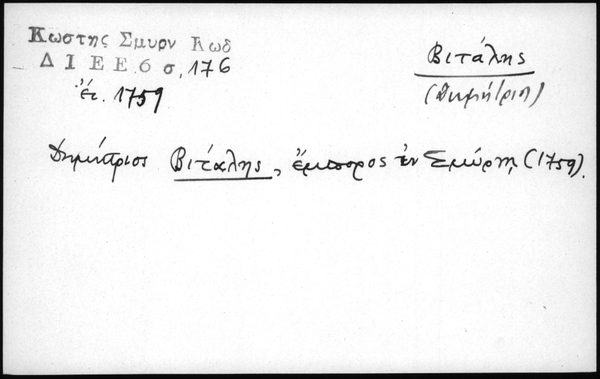 Κωστης Σμυρν Κωδ
Δ Ι Ε Ε. 6 σ. 176
ἔτ. 1759
Βιτάλης
(Δημήτριος)
Δημήτριος Βιτάλης, ἔμπορος ἐν Σμύρνῃ (1759).